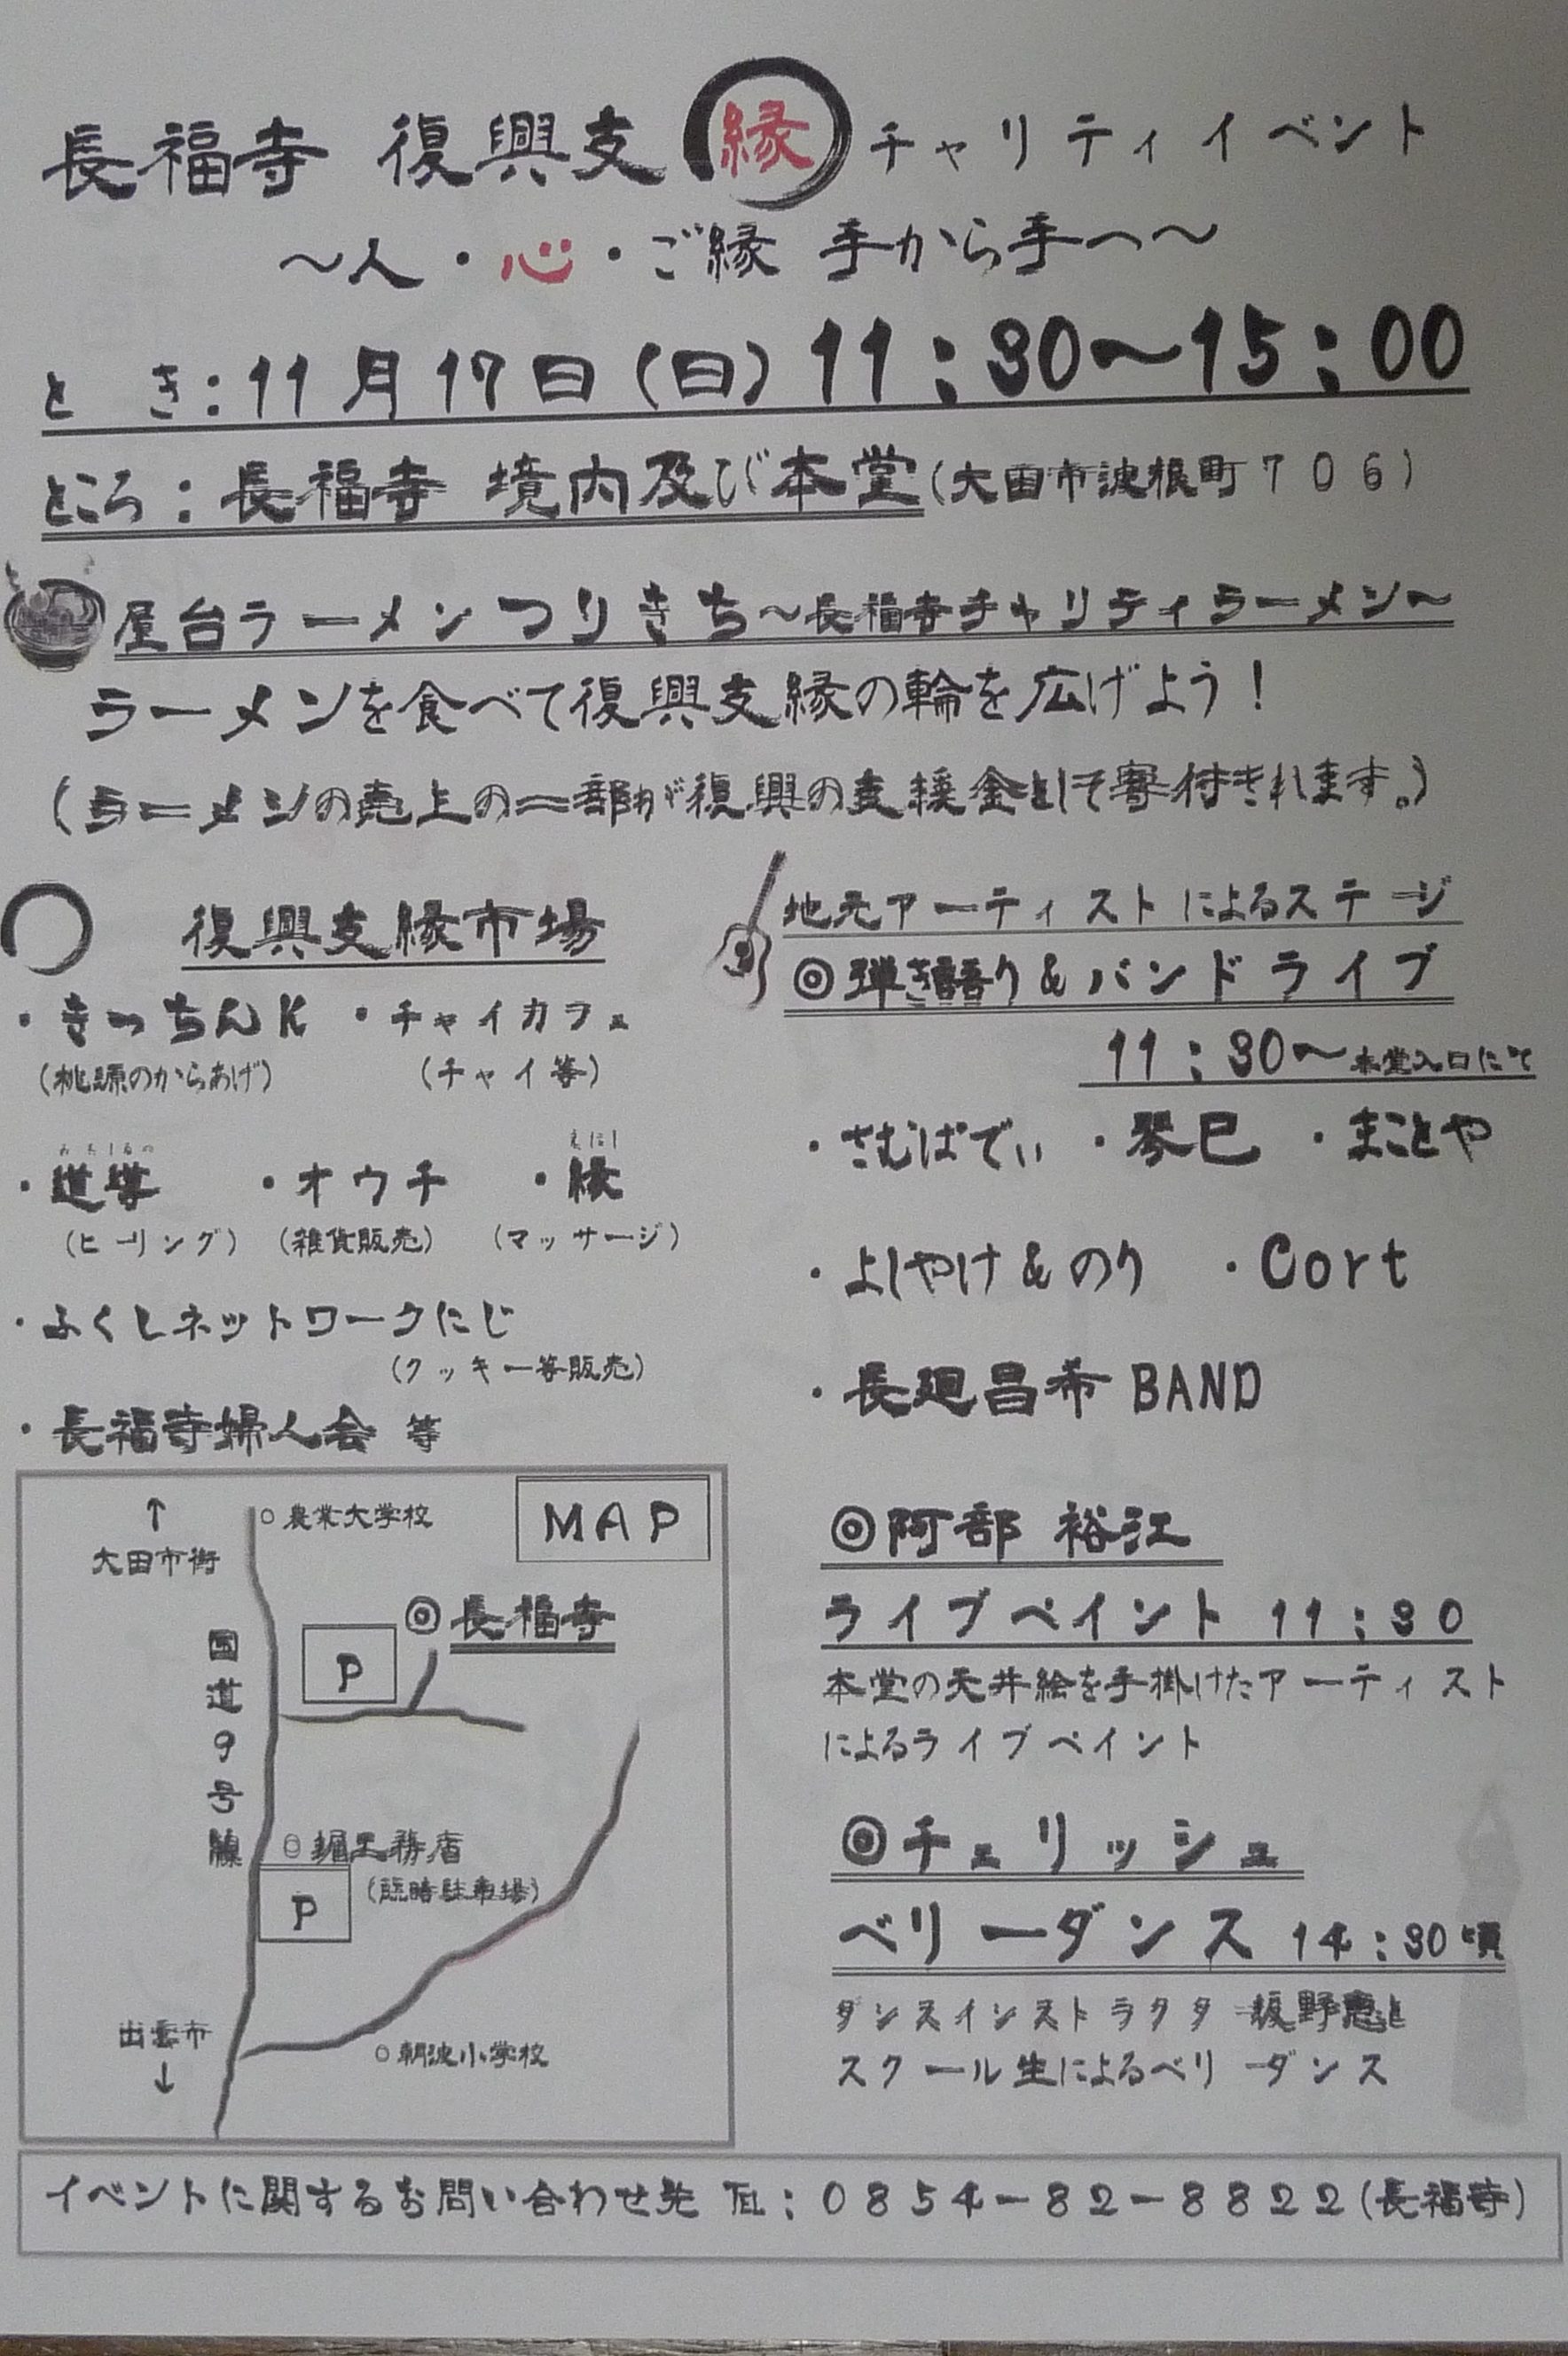 長福寺 復興支縁チャリティイベント
～人・心・ご縁 手から手へ～
と き：11月17日（日）11：30～15：00
ところ：長福寺 境内及び本堂（大田市波根町706）
屋台ラーメンつりきち～長福寺チャリティラーメン～
ラーメンを食べて復興支縁の輪を広げよう！
（ラーメンの売上の一部が復興の支援金として寄付されます。）
復興支縁市場
・きっちんK ・チャイカフェ
（桃源のからあげ） （チャイ等）
みちしるの えにし
・道導 ・オウチ ・縁
（ヒーリング） （雑貨販売） （マッサージ）
・ふくしネットワークにじ
（クッキー等販売）
・長福寺婦人会 等
地元アーティストによるステージ
◎弾き語り＆バンドライブ
11：30～本堂入口にて
・さむばでぃ ・琴巳 ・まことや
・よしやけ＆のり ・Cort
・長廻昌希BAND
◎阿部 裕江
ライブペイント 11：30
本堂の天井絵を手掛けたアーティスト
によるライブペイント
◎チェリッシュ
ベリーダンス 14：30頃
ダンスインストラクター坂野恵と
スクール生によるベリーダンス
MAP
↑
大田市街
○農業大学校
◎長福寺
P
国道9号線
○堀工務店
P
（臨時駐車場）
出雲市
↓
○朝波小学校
イベントに関するお問い合わせ先 TEL：0854－82－8822（長福寺）